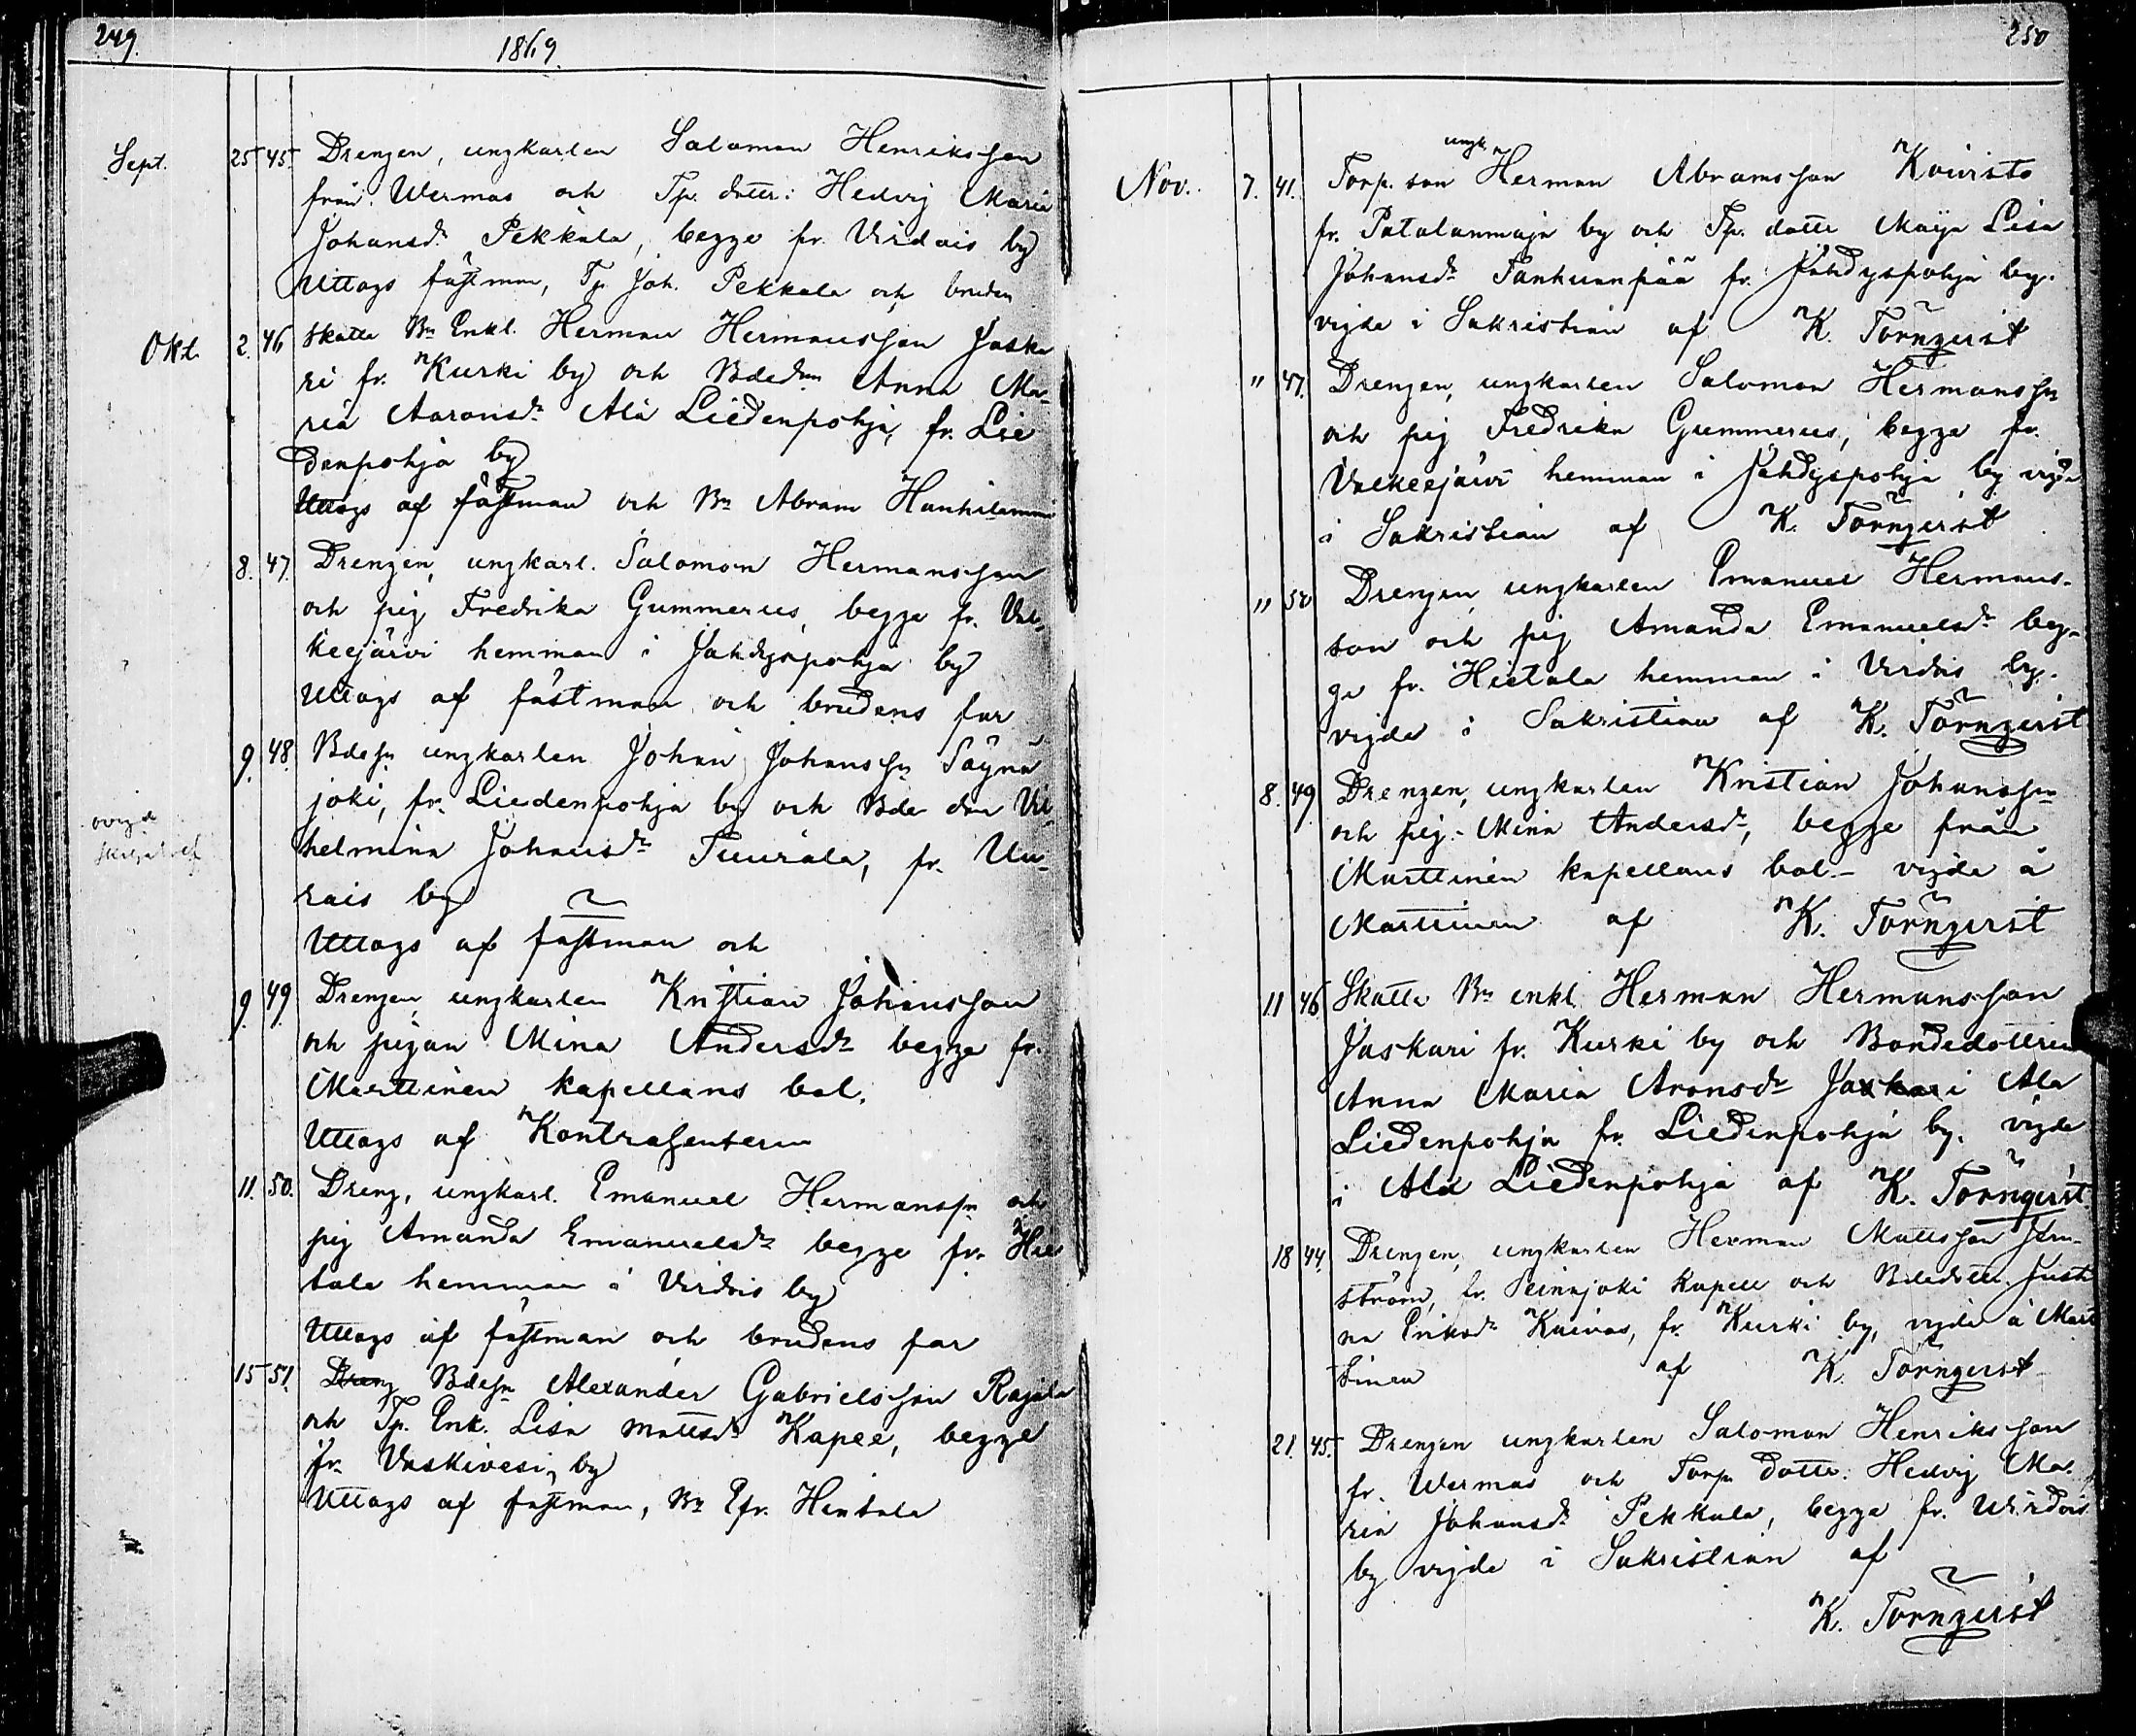 249.
1869.
Sept. 25 45 Drengen, ungkarlen Salomon Henriksson
från Wermas och Tp. dottr: Hedvig Maria
Johansdr Pekkala, begge fr. Virdois by
Uttogs fästman, Tp Joh. Pekkala och bruden
Okt. 2. 46 Skatte Bn Enkl. Herman Hermansson Jaska
ri fr. Kurki by och Bdedrn Anna Ma-
ria Aaronsdr Ala Liedenpohja, fr. Lie
denpohja by
Uttogs af fästman och Bn Abram Hanhilammi
8. 47. Drengen, ungkarl. Salomon Hermansson
och pig Fredrika Gummerus, begge fr. Val-
keejärvi hemman i Jähdyspohja by
Uttogs af fästman och brudens far
9. 48. Bdesn ungkarlen Johan Johanssn Säynä
joki, fr. Liedenpohja by och Bde drn Vil-
helmina Johansdr Tuurala, fr. Un-
rais by
ovigde
Uttogs af fästman och
9. 49. Drengen, ungkarlen Kristian Johansson
och pigan Mina Andersdr begge fr.
Marttinen kapellans bol.
Uttogs af Kontrahenterna
11. 50. Dreng, ungkarl. Emanuel Hermanssn och
pig Amanda Emanuelsdr begge fr. Hie
tala hemman i Virdois by
Uttogs af fästman och brudens far
15 51. Dreng Bdesn Alexander Gabrielsson Rajala
och Tp. Enk. Lisa Mattsdr Kapee, begge
fr. Vaskivesi by
Uttogs af fästman, Bn Efr. Hientala
250
ungk.
Nov. 7. 41. Torp. son Herman Abramsson Koivisto
fr. Patalanmaja by och Tp. dottr Maija Lisa
Johansdr Tanhuanpää fr. Jähdyspohja by.
vigde i Sakristian af K. Törnqvist
" 47. Drengen, ungkarlen Salomon Hermanssn
och pig Fredrika Gummerus, begge fr.
Valkeejärvi hemman i Jähdyspohja by vigde
i Sakristian af K. Törnqvist
" 50 Drengen, ungkarlen Emanuel Hermans-
son och pig Amanda Emanuelsdr beg-
ge fr. Hietala hemman i Virdois by.
vigde i Sakristian af K. Törnqvist
8. 49 Drengen, ungkarlen Kristian Johanssn
och pig. Mina Andersdr, begge från
Marttinen kapellans bol. - vigde å
Marttinen af K. Törnqvist
11 46 Skatte Bn enkl. Herman Hermansson
Jaskari fr. Kurki by och Bondedottren
Anna Maria Aronsdr Jaskari Ala
Liedenpohja fr. Liedenpohja by. vigde
i Ala Liedenpohja af K. Törnqvist
18 44. Drengen, ungkarlen Herman Mattsson Jern-
ström, fr. Peinäjoki kapell och Bdedottr. Justi
na Eriksdr Kuivas, fr. Kurki by, vigde å Mart
tinen af K. Törnqvist
21. 45. Drengen ungkarlen Salomon Henriksson
fr. Wermas och Torp. dottr. Hedvig Ma-
ria Johansdr Pekkala, begge fr. Wirdois
by vigde i Sakristian af
K. Törnqvist